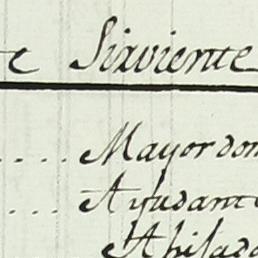 te Sirviente
.... Mayordom
.... Ayudante
Ahijado